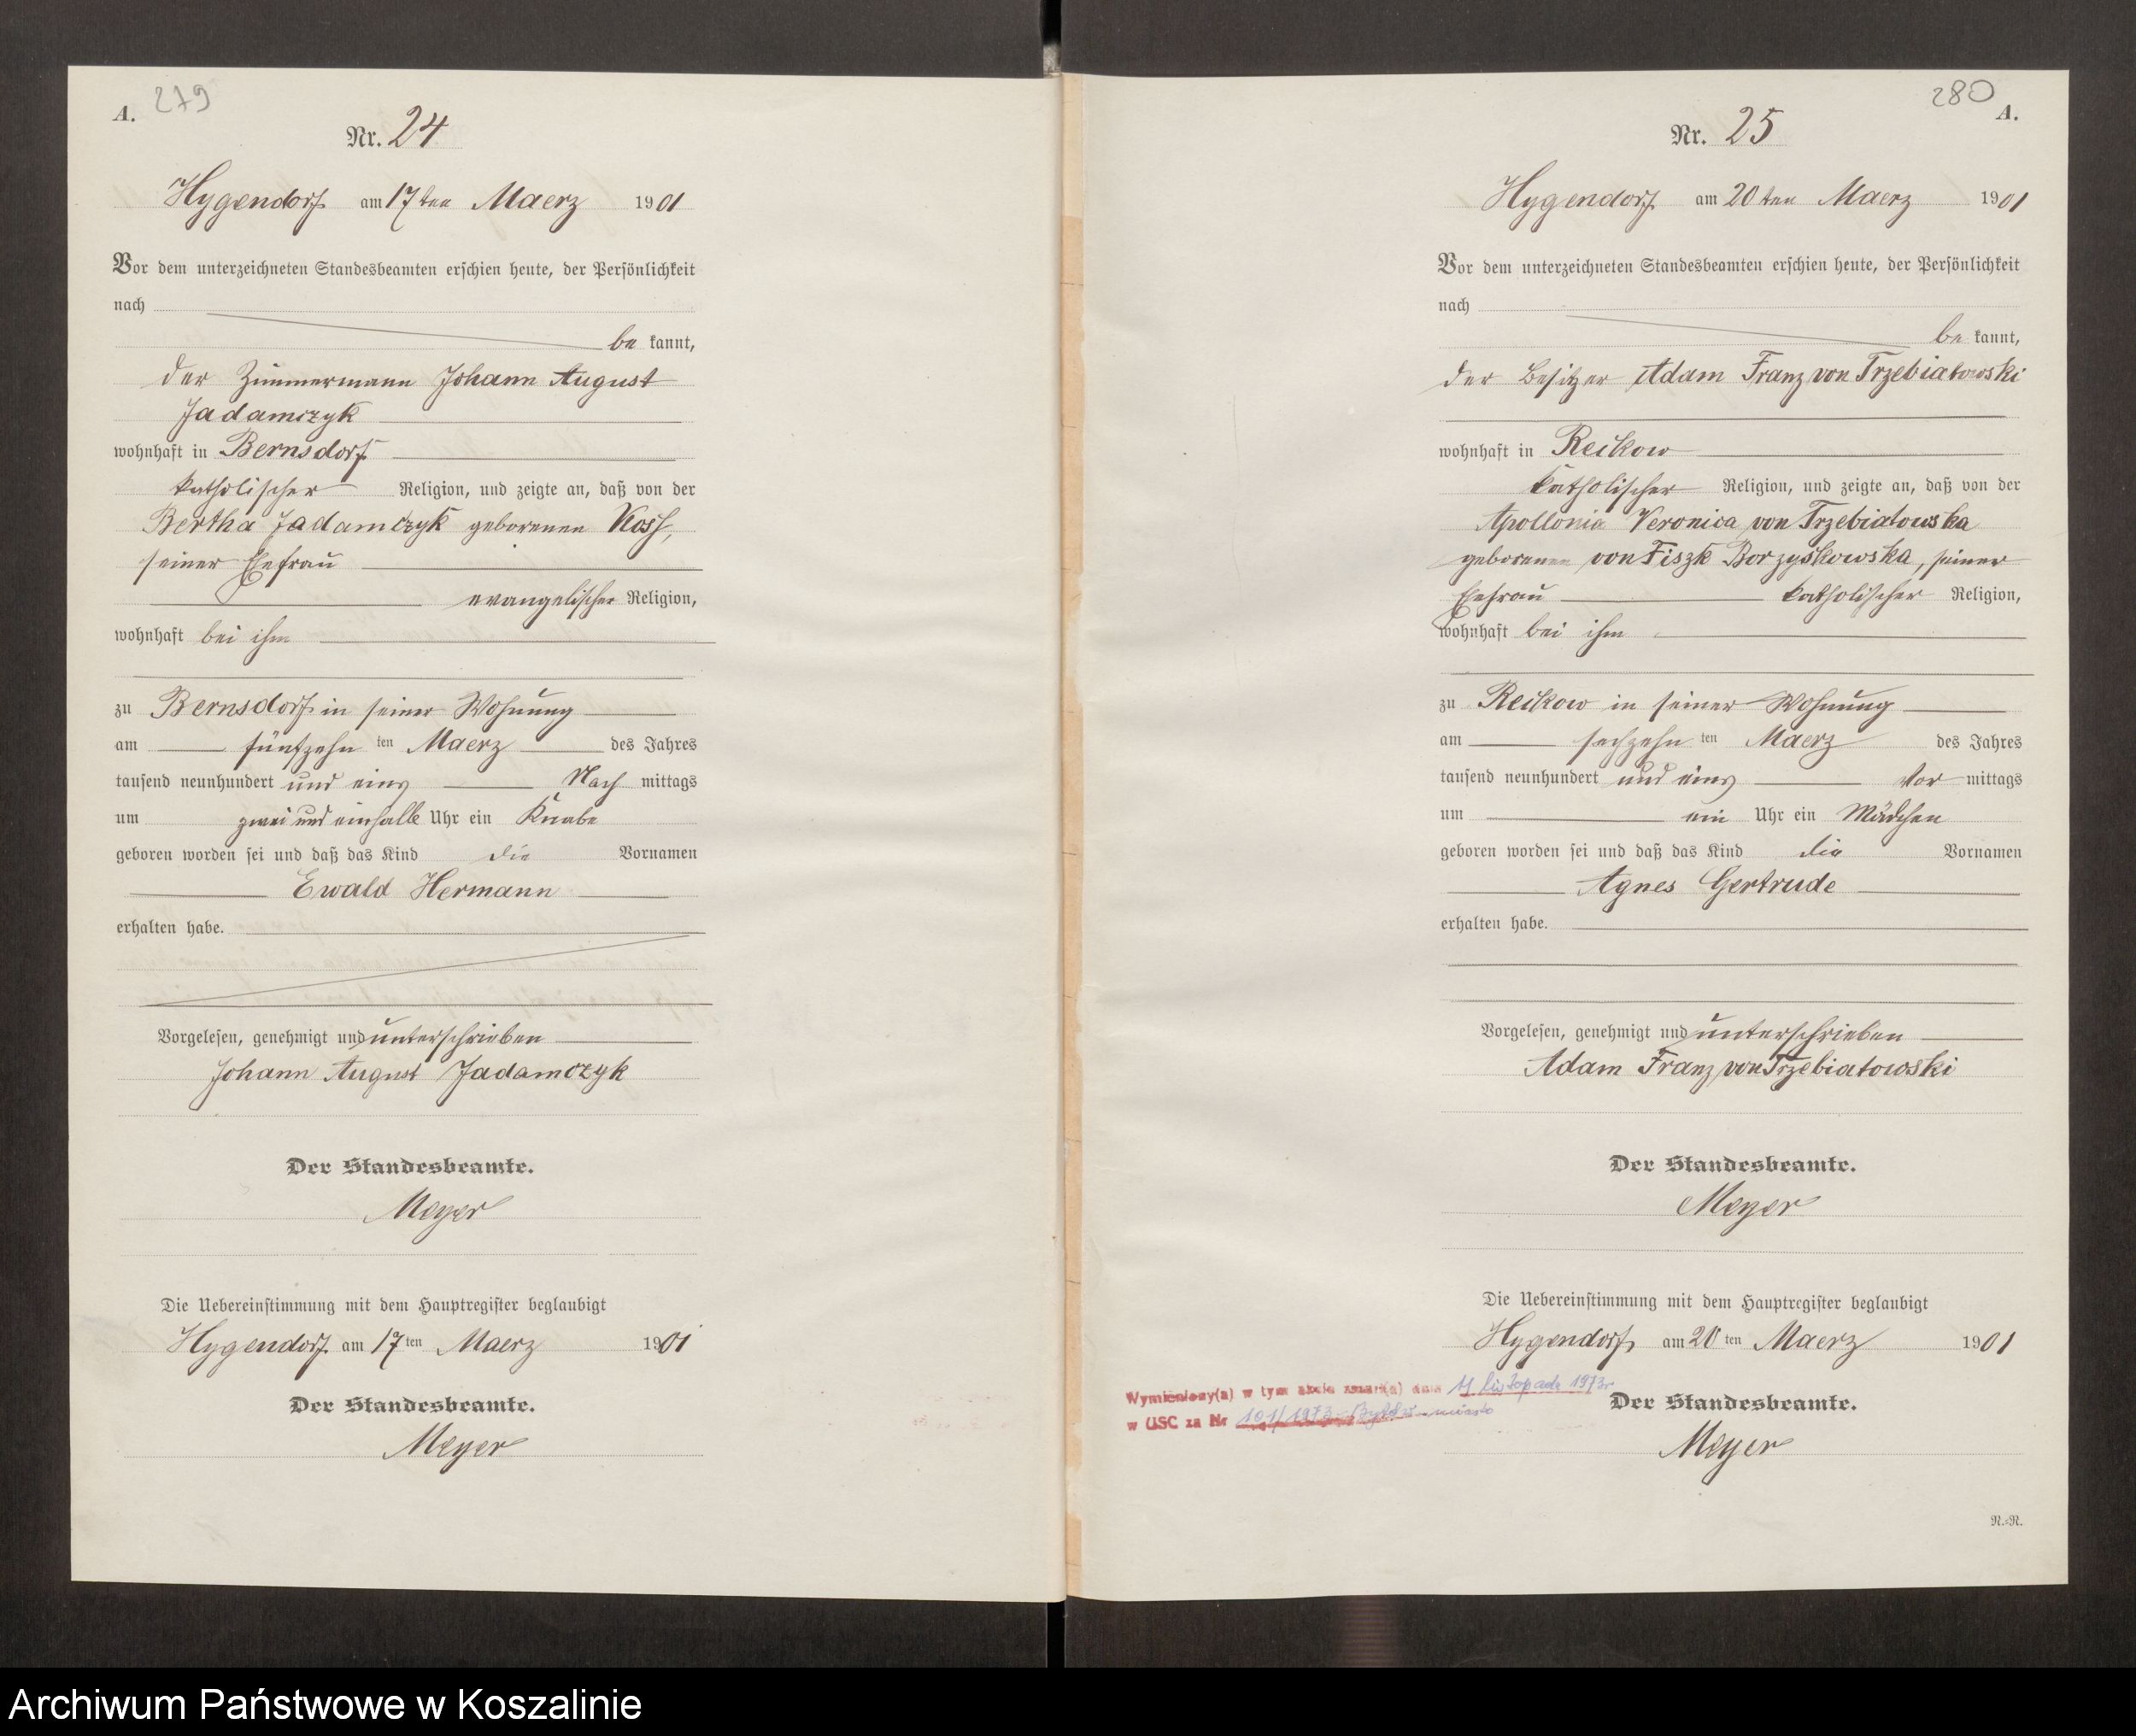 A. 279
Nr. 24
Hygendorf am 17ten Maerz 1901
Vor dem unterzeichneten Standesbeamten erschien heute, der Persönlichkeit
nach
be kannt,
der Zimmermann Johann August
Jadamczyk
wohnhaft in Bernsdorf
katholischer Religion, und zeigte an, daß von der
Bertha Jadamczyk geborenen Koss,
seiner Ehefrau
evangelischer Religion,
wohnhaft bei ihm
zu Bernsdorf in seiner Wohnung
am fünfzehn ten Maerz des Jahres
tausend neunhundert und eins Nach mittags
um zwei und einhalb Uhr ein Knabe
geboren worden sei und daß das Kind die Vornamen
Ewald Hermann
erhalten habe.
Vorgelesen, genehmigt und unterschrieben
Johann August Jadamczyk
Der Standesbeamte.
Meyer
Die Uebereinstimmung mit dem Hauptregister beglaubigt
Hygendorf am 17 ten Maerz 1901
Der Standesbeamte.
Meyer
280 A.
Nr. 25
Hygendorf am 20ten Maerz 1901
Vor dem unterzeichneten Standesbeamten erschien heute, der Persönlichkeit
nach
be kannt,
der Besitzer Adam Franz von Trzebiatowski
wohnhaft in Reckow
katholischer Religion, und zeigte an, daß von der
Apollonia Veronica von Trzebiatowska
geborenen von Fiszk Borzyskowska, seiner
Ehefrau katholischer Religion,
wohnhaft bei ihm
zu Reckow in seiner Wohnung
am sechzehn ten Maerz des Jahres
tausend neunhundert und eins Vor mittags
um ein Uhr ein Mädchen
geboren worden sei und daß das Kind die Vornamen
Agnes Gertrude
erhalten habe.
Vorgelesen, genehmigt und unterschrieben
Adam Franz von Trzebiatowski
Der Standesbeamte.
Meyer
Die Uebereinstimmung mit dem Hauptregister beglaubigt
Hygendorf, am 20 ten Maerz 1901
Wymieniony(a) w tym akcie zmarł(a) dnia 11 listopada 1973r
w USC za Nr 101/1973 Bytów-miasto
Der Standesbeamte.
Meyer
R.=R.
Archiwum Państwowe w Koszalinie